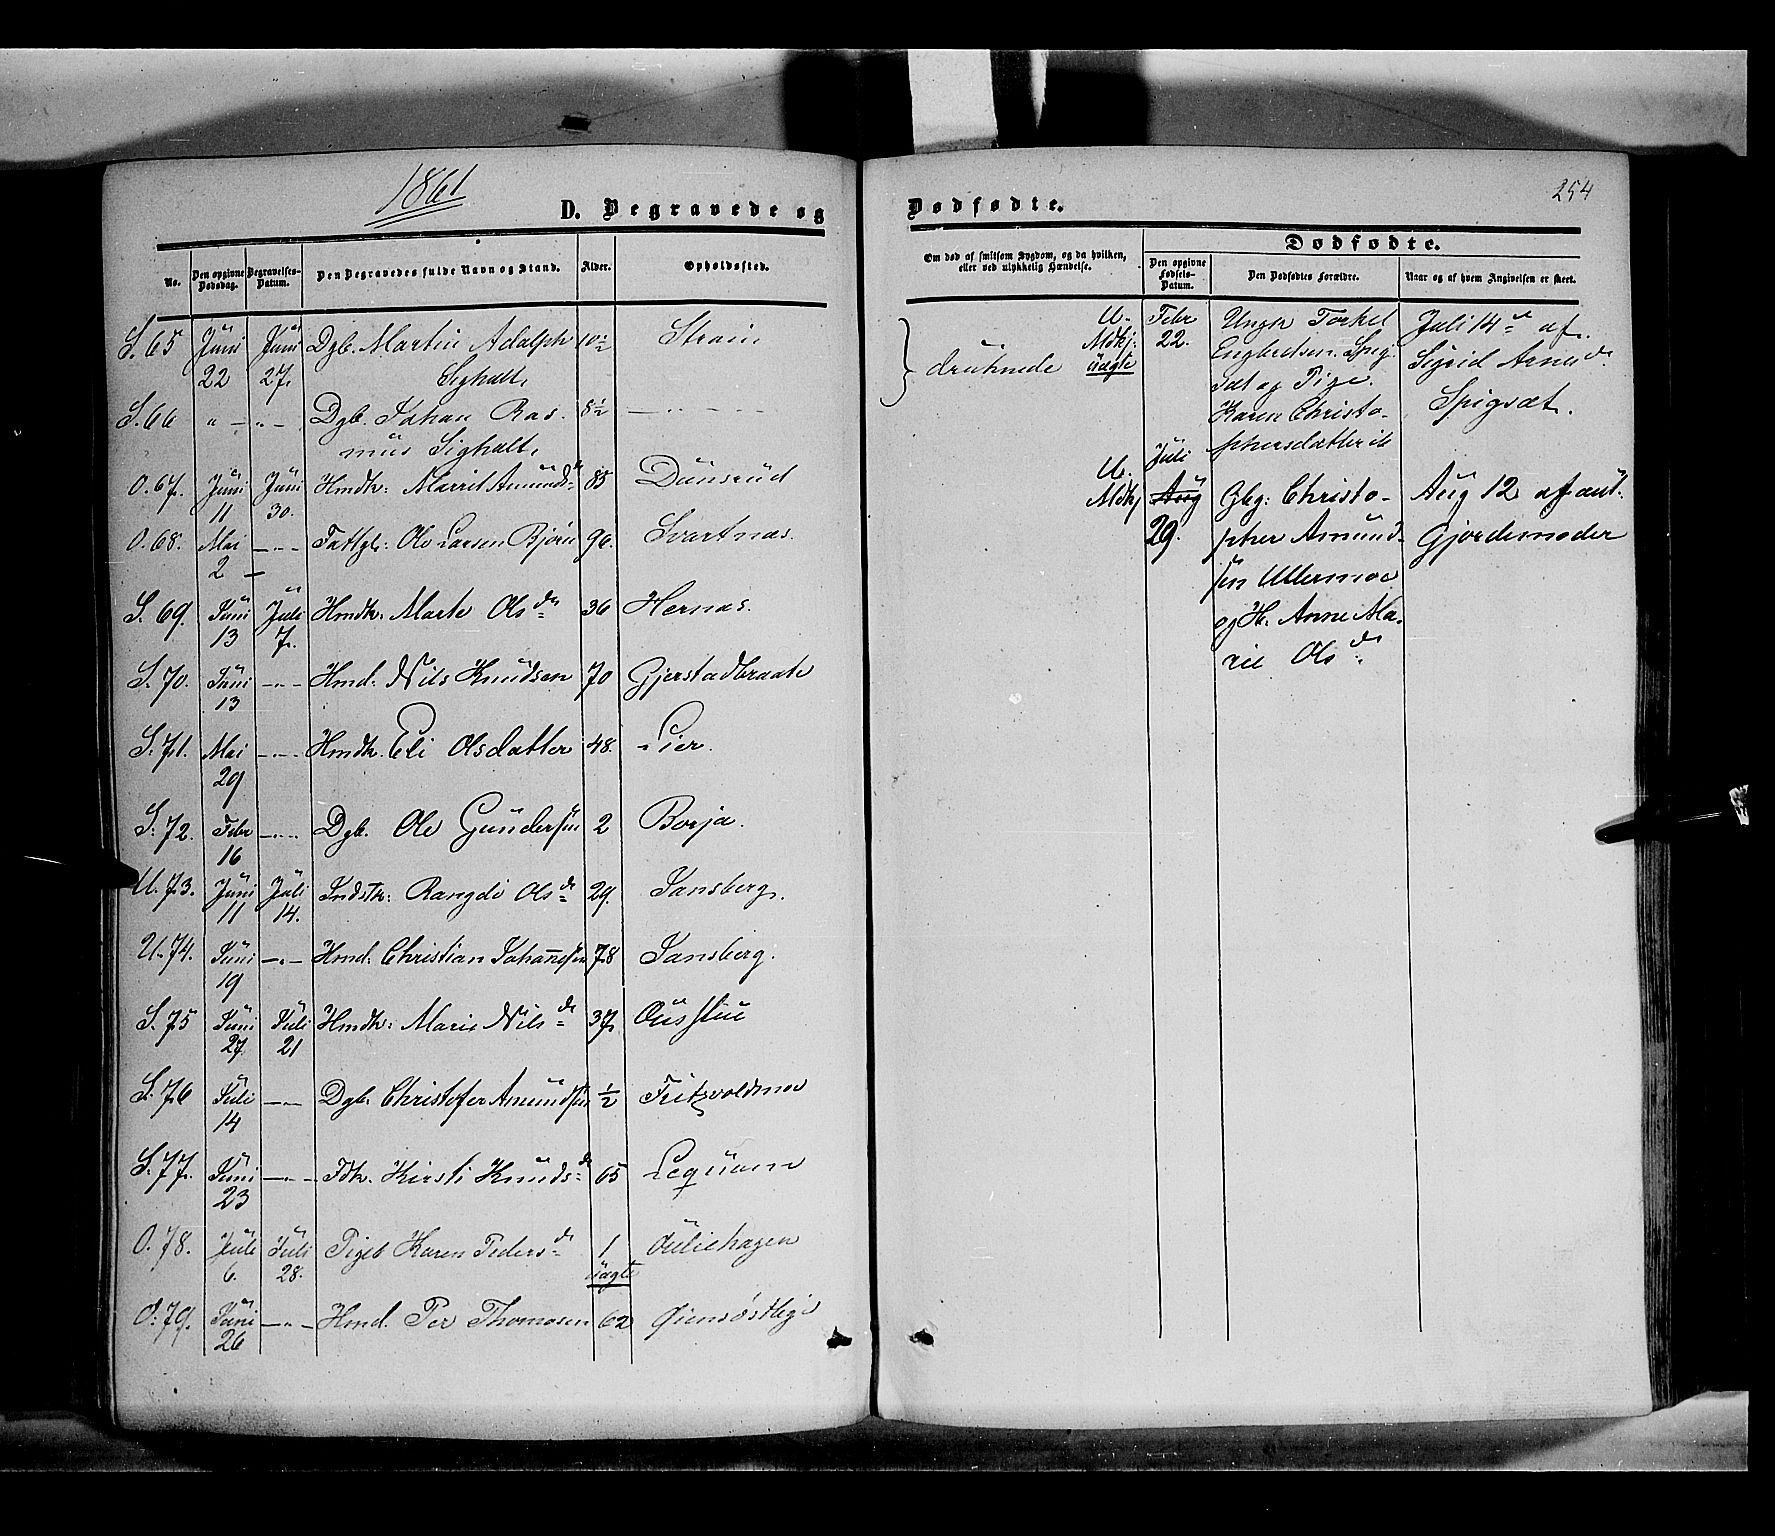 1861
D. Begravede og
No.
Den opgivne Dødsdag.
Begravelses-Datum.
Den Begravedes fulde Navn og Stand.
Alder.
Opholdssted.
S. 65 Juni 22 Juni 27. Dgb. Martin Adolph 10½ Strøm
Sigholt,
S. 66 " — " — Dgb. Johan Ras- 8½ — " — —
mus Sigholt,
O. 67. Juni 11 Juni 30. Hmdk: Marrit Amundsdr 85
O. 68. Mai 2 — " — Fattgl: Ole Larsen Bjørn 96. Svartnæs.
S. 69. Juni 13 Juli 7. Hmdk: Marte Olsdr 36 Hernæs.
S. 70. Juni 13 — " — Hmd. Nils Knudsen 70 Gjerstadbraate
S. 71. Mai 29 — " — Hmdk. Eli Olsdatter 48. Lier.
S. 72. Febr 16 — " — Dgb. Ole Gundersen 2 Borja.
U. 73. Juni 11 Juli 14. Indstk: Rangdi Olsdr 29. Jonsberg.
U. 74. Juni 19 — " — Hmd. Christian Johannesen 78 Jonsberg.
S. 75 Juni 27. Juli 21 Hmdk: Marie Nilsdr 37
S. 76 Juli 14 — " — Dgb. Christofer Amundsen ½
S. 77. Juni 23 — " — Fdk. Kirsti Knudsdr 65
O. 78. Juli 6. Juli 28. Pigeb Karen Pedersdr 1 Juliehagen
uægte
O. 79. Juni 26 — " — Hmd. Per Thomasen 62
254
Dødfødte.
Om død af smitsom Sygdom, og da hvilken,
eller ved ulykkelig Hændelse.
Dødfødte.
Den opgivne Fødsels-Datum.
Den Dødfødtes Forældre.
Naar og af hvem Angivelsen er skeet.
druknede
U. Mdkj: uægte
Febr 22.
Ungk Torkel
Engbretsen Spig-
sæt og Pige.
Karen Christo-
phersdatter ib
Juli 14de af
Sigrid Arnesdr
Spigsæt.
U. Mdkj
Juli
Aug
29.
Gbg: Christo-
pher Amund-
sen Ullermoe
og H: Anne Ma-
rie Olsdr
Aug 12 af aut:
Gjordemoder